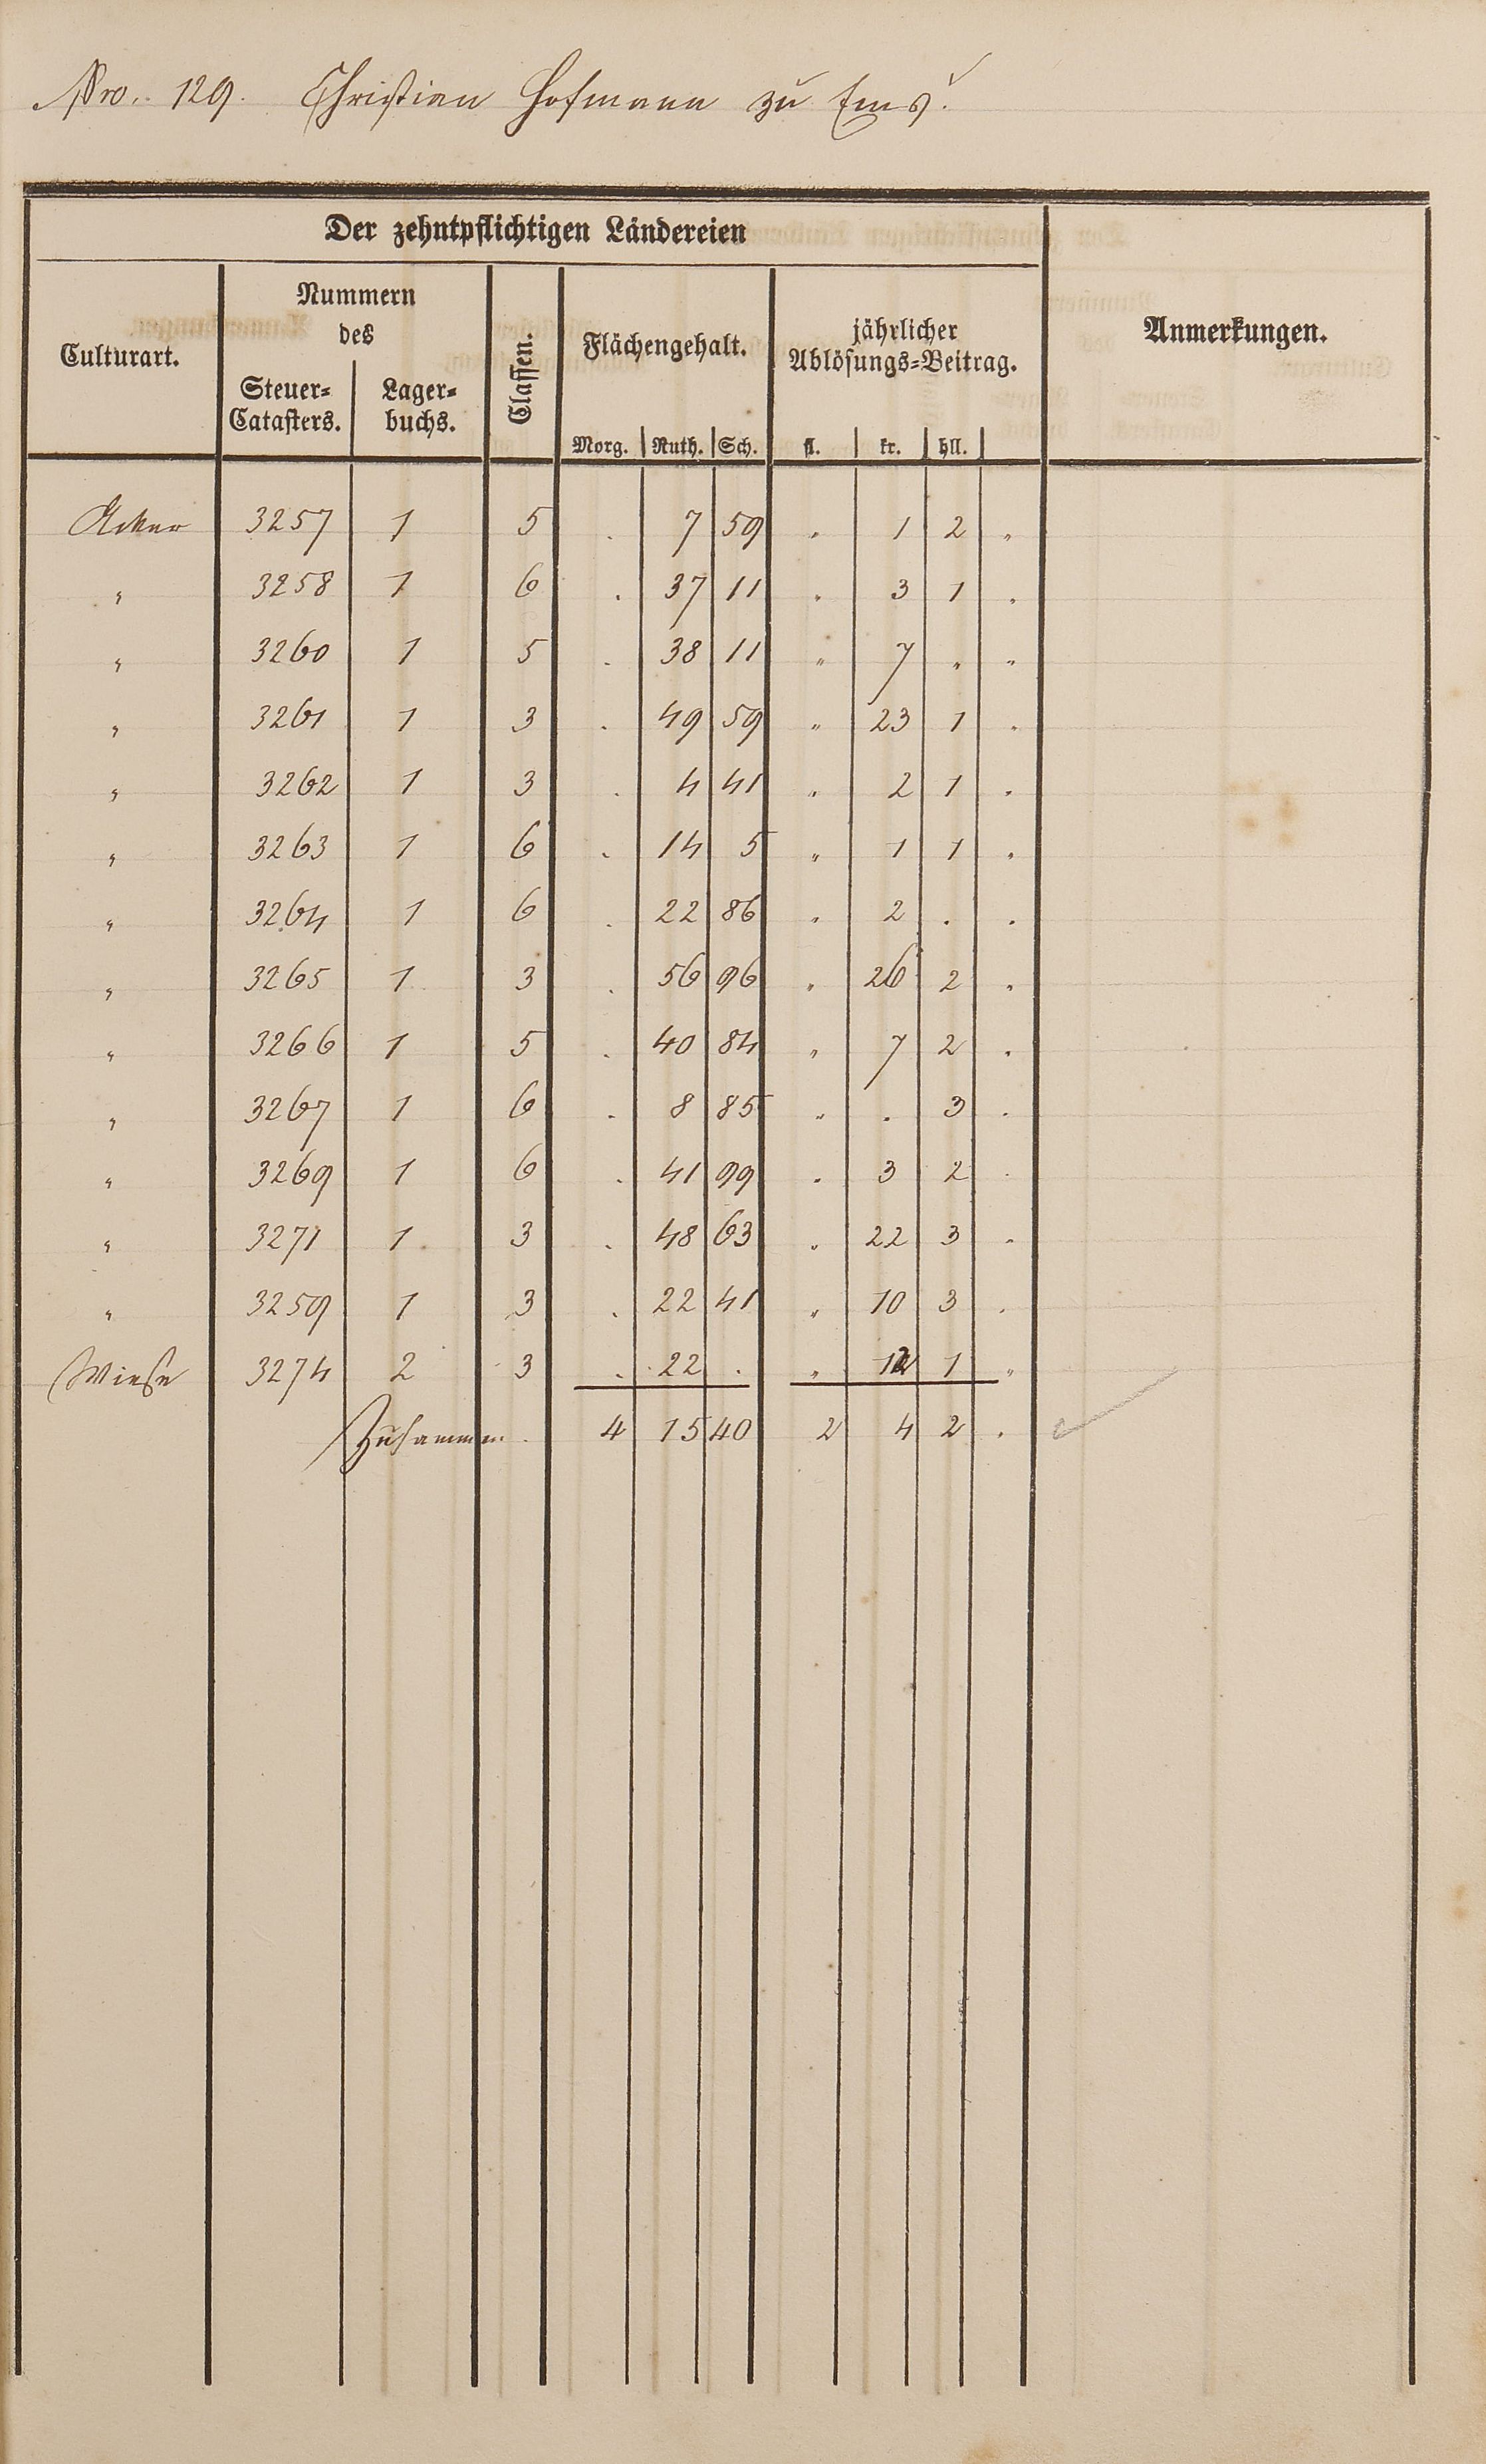 Nro. 129. Christian Hofmann zu Ems.
Der zehntpflichtigen Ländereien
Culturart.
Nummern
des
Steuer=
Catasters.
Lager=
buchs.
Classen.
Flächengehalt.
Morg. Ruth. Sch.
jährlicher
Ablösungs=Beitrag.
fl. kr. hll.
Anmerkungen.
Acker 3257 1 5 . 7 59 „ 1 2 „
„ 3258 1 6 . 37 11 „ 3 1 .
„ 3260 1 5 . 38 11 „ 7 „ „
„ 3261 1 3 . 49 59 „ 23 1 .
„ 3262 1 3 . 4 41 „ 2 1 .
„ 3263 1 6 . 14 5 „ 1 1 .
„ 3264 1 6 . 22 86 „ 2 . .
„ 3265 1 3 . 56 96 „ 26 2 .
„ 3266 1 5 . 40 84 „ 7 2 .
„ 3267 1 6 . 8 85 „ . 3 .
„ 3269 1 6 . 41 99 „ 3 2 .
„ 3271 1 3 . 48 63 „ 22 3 .
„ 3259 1 3 . 22 41 „ 10 3 .
Wiese 3274 2 3 . 22 . „ 12 1 „
Zusammen. 4 15 40 2 4 2 .